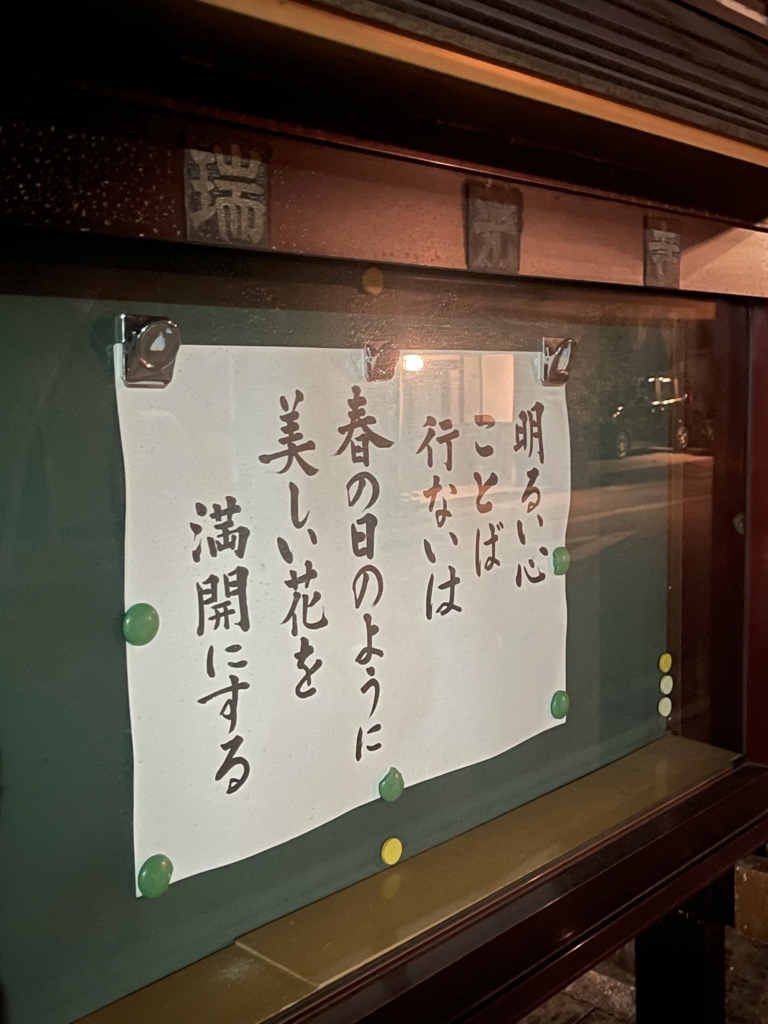 瑞光寺
明るい心
ことば
行ないは
春の日のように
美しい花を
満開にする